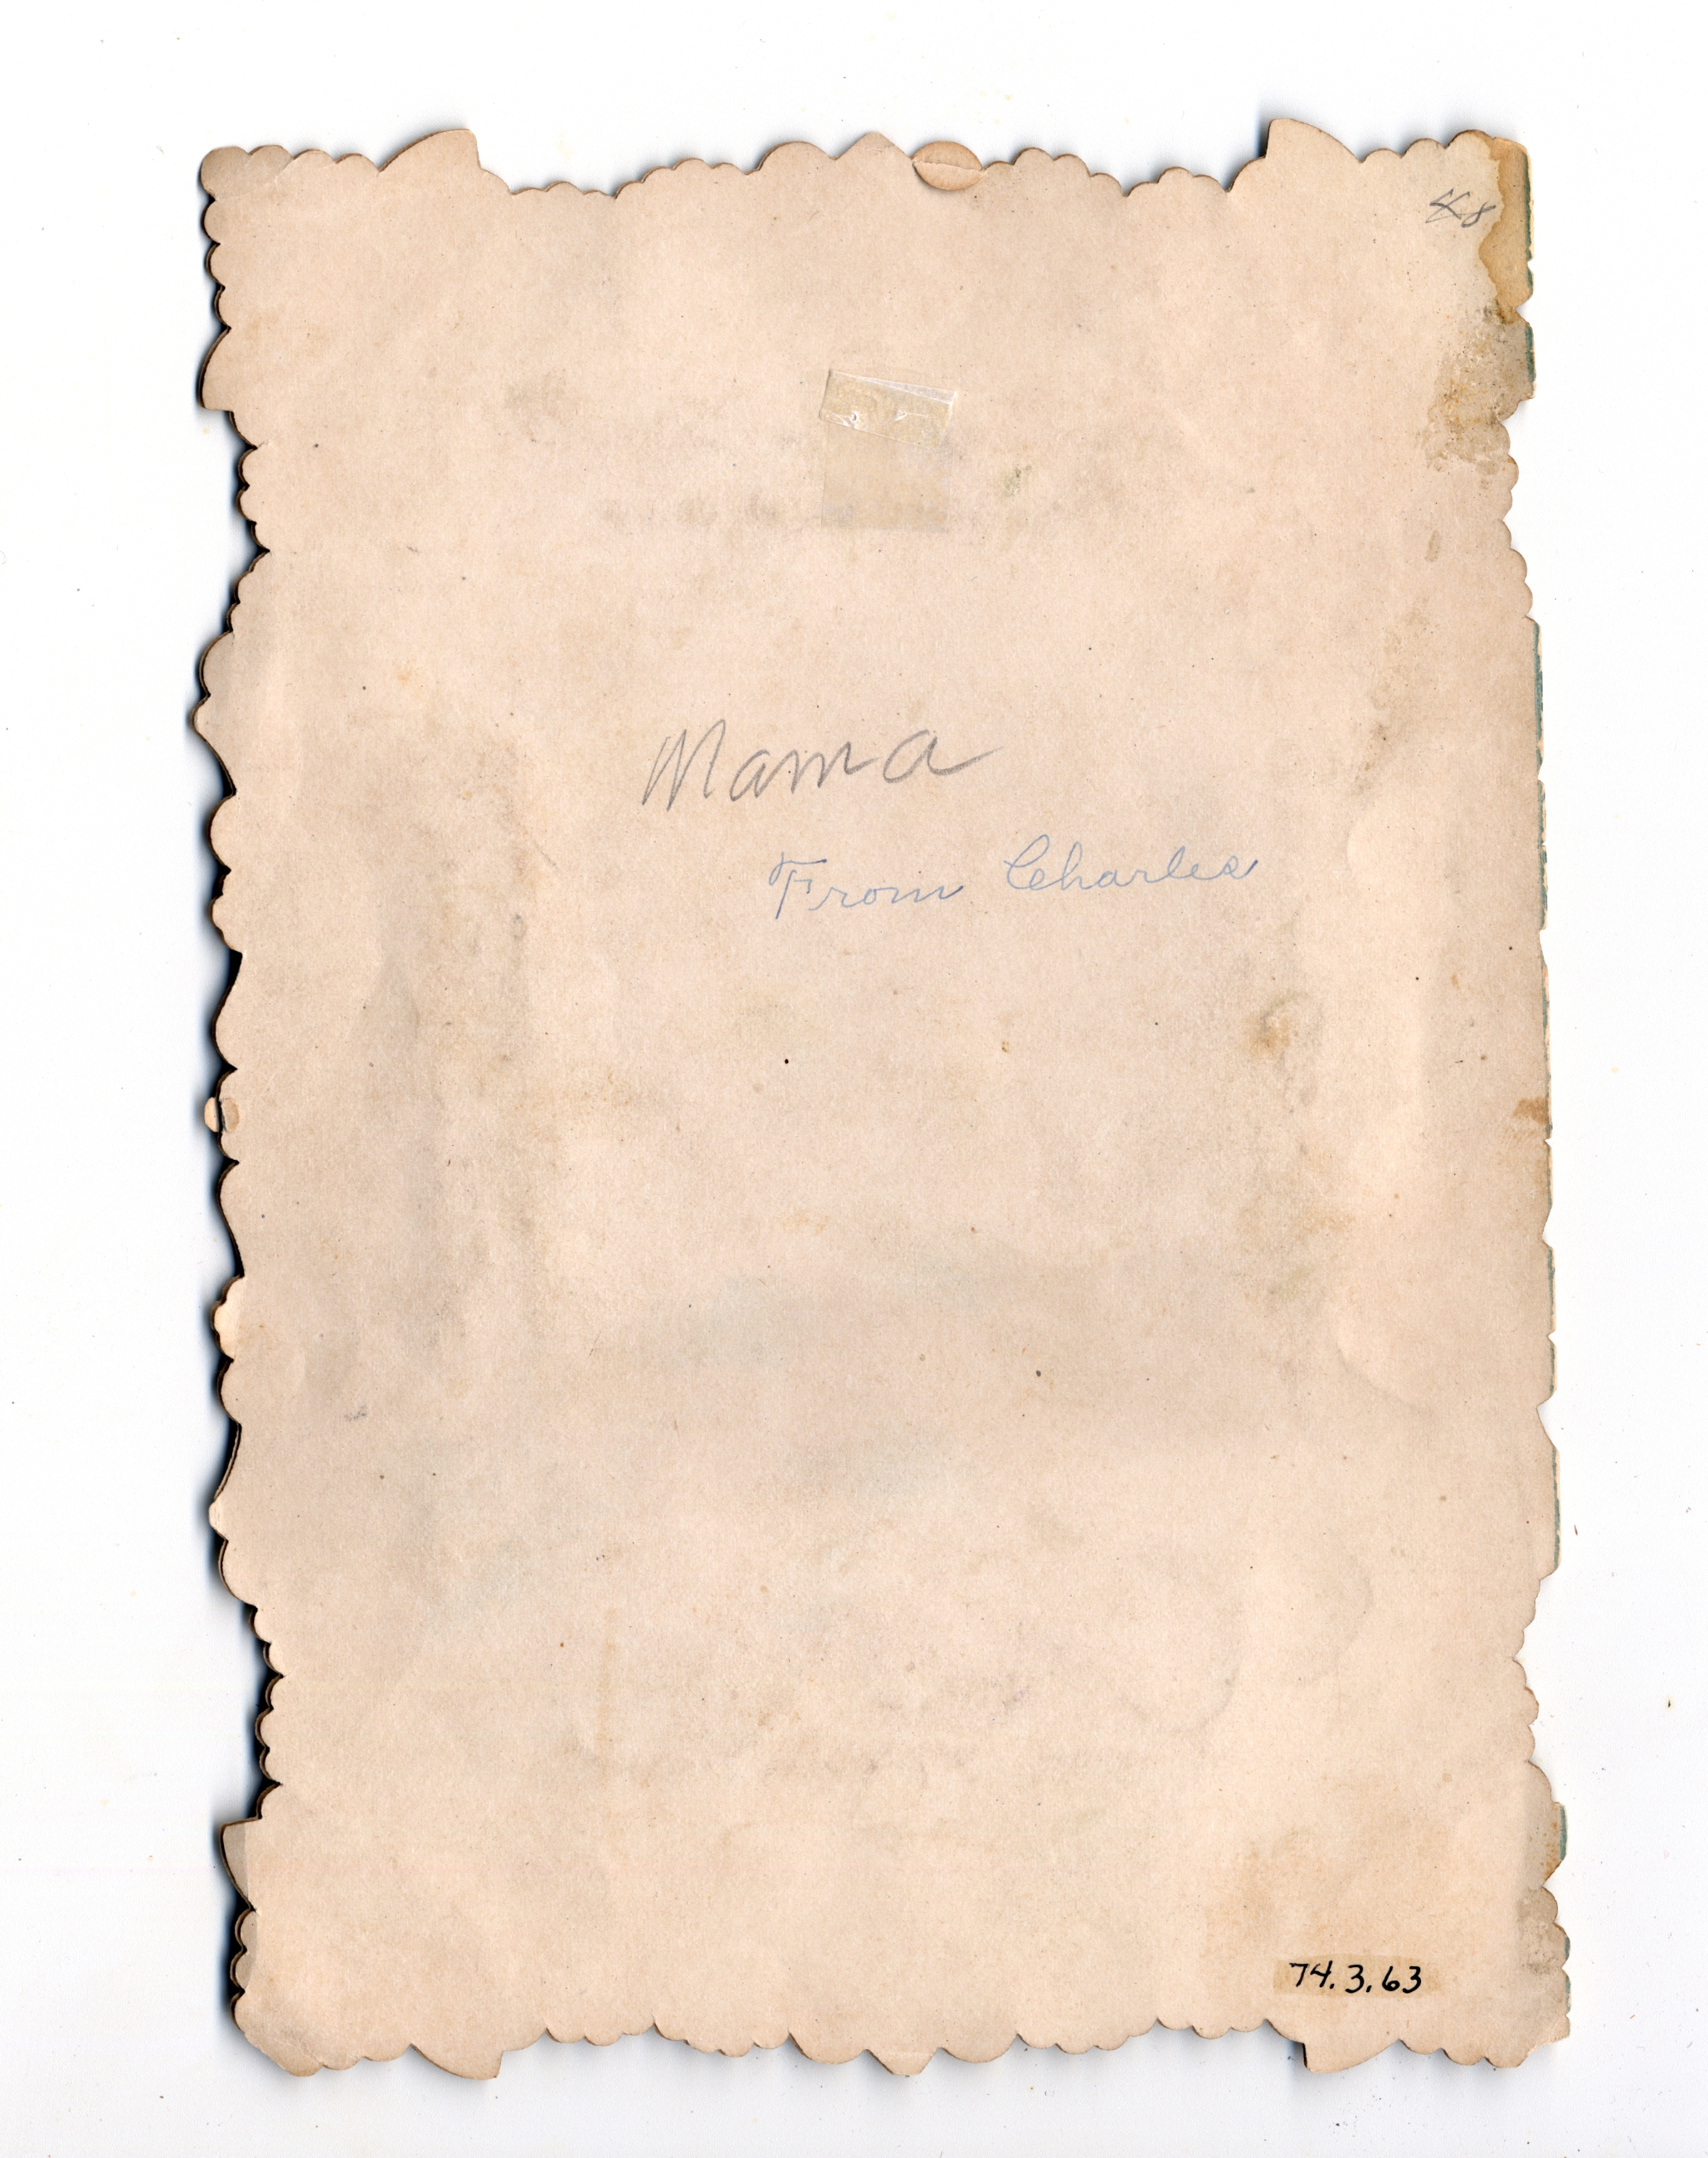 Mama
From Charles
74.3.63